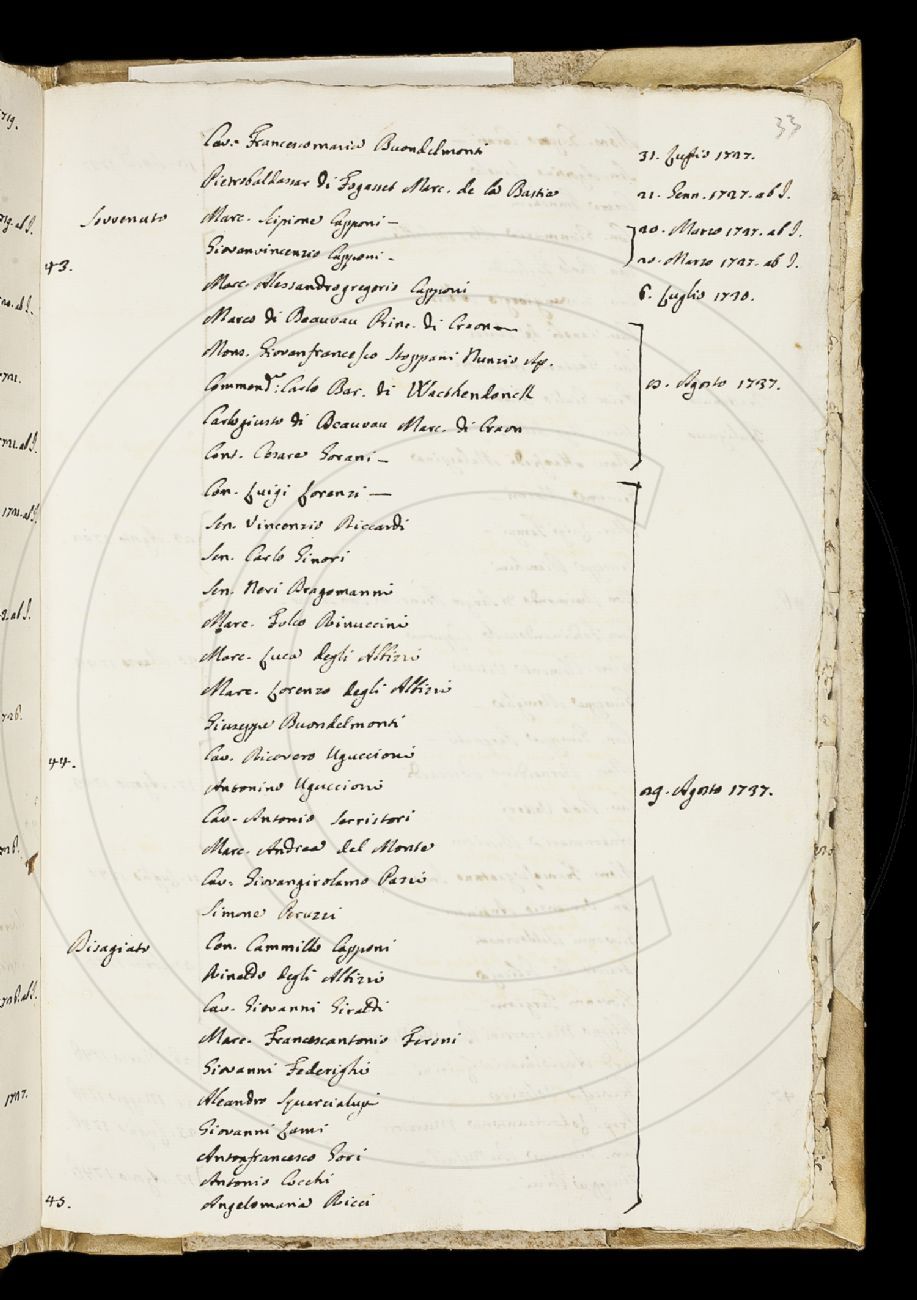 33
Cav. Francescomaria Buondelmonti 31. Luglio 1727.
Pietrobaldassar di Fogasses Marc. de la Bastie 21. Genn. 1727. ab I.
Sovvenuto Marc. Scipione Capponi — 20. Marzo 1727. ab I.
43. Giovanvincenzo Capponi — 20. Marzo 1727. ab I.
Marc. Alessandrogregorio Capponi 6. Luglio 1730.
Marco di Beauvau Prin. di Craon —
Mons. Giovanfrancesco Stoppani Nunzio Ap.
Commend.r Carlo Bar. di Wachtendonck Agosto 1737.
Carlogiusto di Beauvau Marc. di Craon
Con. Cesare Gorani —
Con. Luigi Lorenzi —
Sen. Vincenzio Riccardi
Sen. Carlo Ginori
Sen. Neri Dragomanni
Marc. Folco Rinuccini
Marc. Luca degli Albizi
Marc. Lorenzo degli Albizi
Giuseppe Buondelmonti
44. Cav. Ricovero Uguccioni
Antonino Uguccioni 29. Agosto 1737.
Cav. Antonio Serristori
Marc. Andrea del Monte
Cav. Giovangirolamo Pazzi
Simone Peruzzi
Disagiato Con. Cammillo Capponi
Rinaldo degli Albizi
Cav. Giovanni Giraldi
Marc. Francescantonio Feroni
Giovanni Federighi
Aleandro Squarcialupi
Giovanni Lami
Antonfrancesco Gori
Antonio Cocchi
45. Angelomaria Ricci